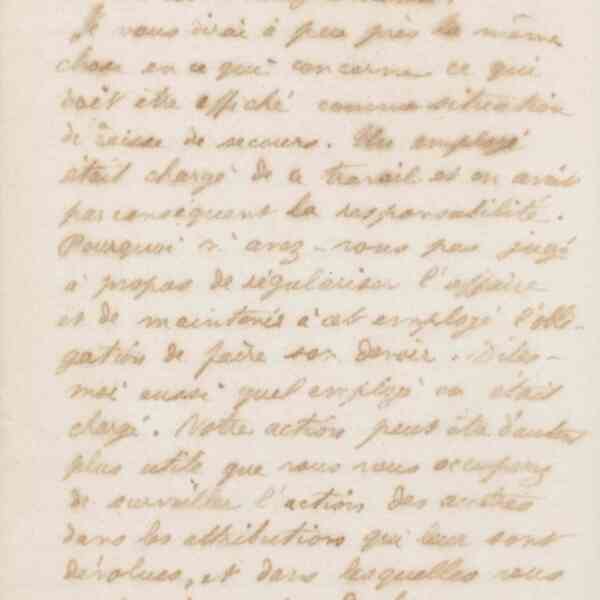 Je vous dirai à peu près la même
chose en ce qui concerne ce qui
doit être affiché comme situation
de caisse de secours. Un employé
était chargé de ce travail et en avait
par conséquent la responsabilité.
Pourquoi n'avez-vous pas jugé
à propos de régulariser l'affaire
et de maintenir à cet employé l'obli-
gation de faire son devoir. Dites-
moi aussi quel employé en était
chargé. Votre action peut être d'autant
plus utile que vous vous occuperez
de surveiller l'action des autres
dans les attributions qui leur sont
dévolues, et dans lesquelles vous